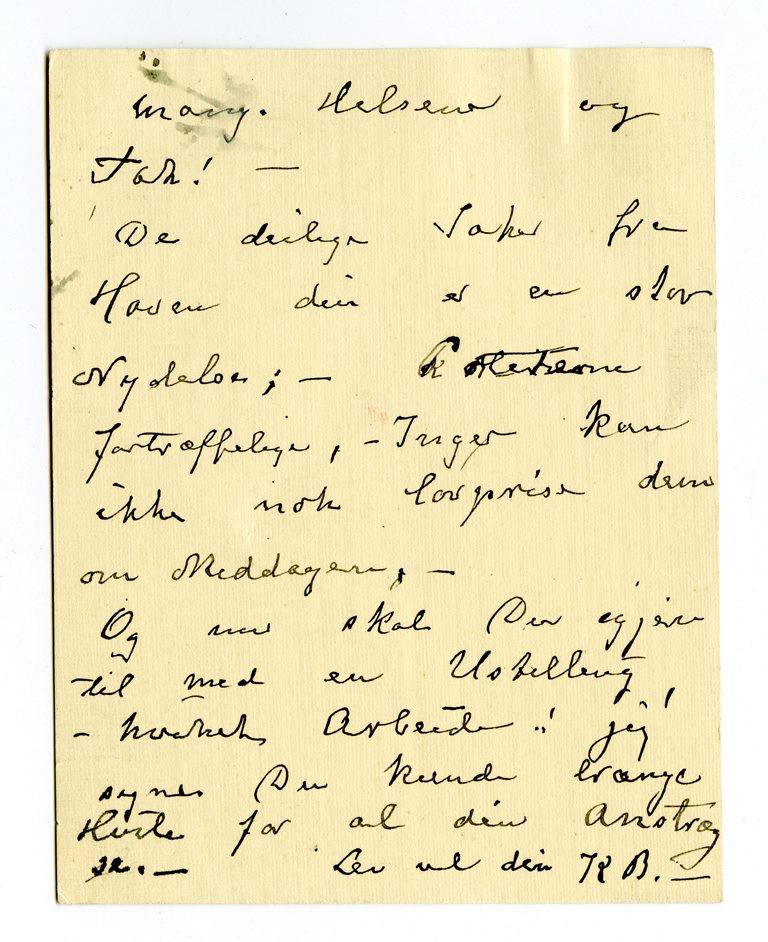 mang. Helsener og
Tak! —
De deilige Saker fra
Haven din er en stor
Nydelse; —
fortræffelige, – Inger kan
ikke nok lovprise dem
om Middagen, —
Og nu skal Du igjen
til med en Ustelling,
– hvilket Arbeide!! jeg
synes Du kunde trænge
Hvile for al din Anstræng
se. — Lev vel din KB. —